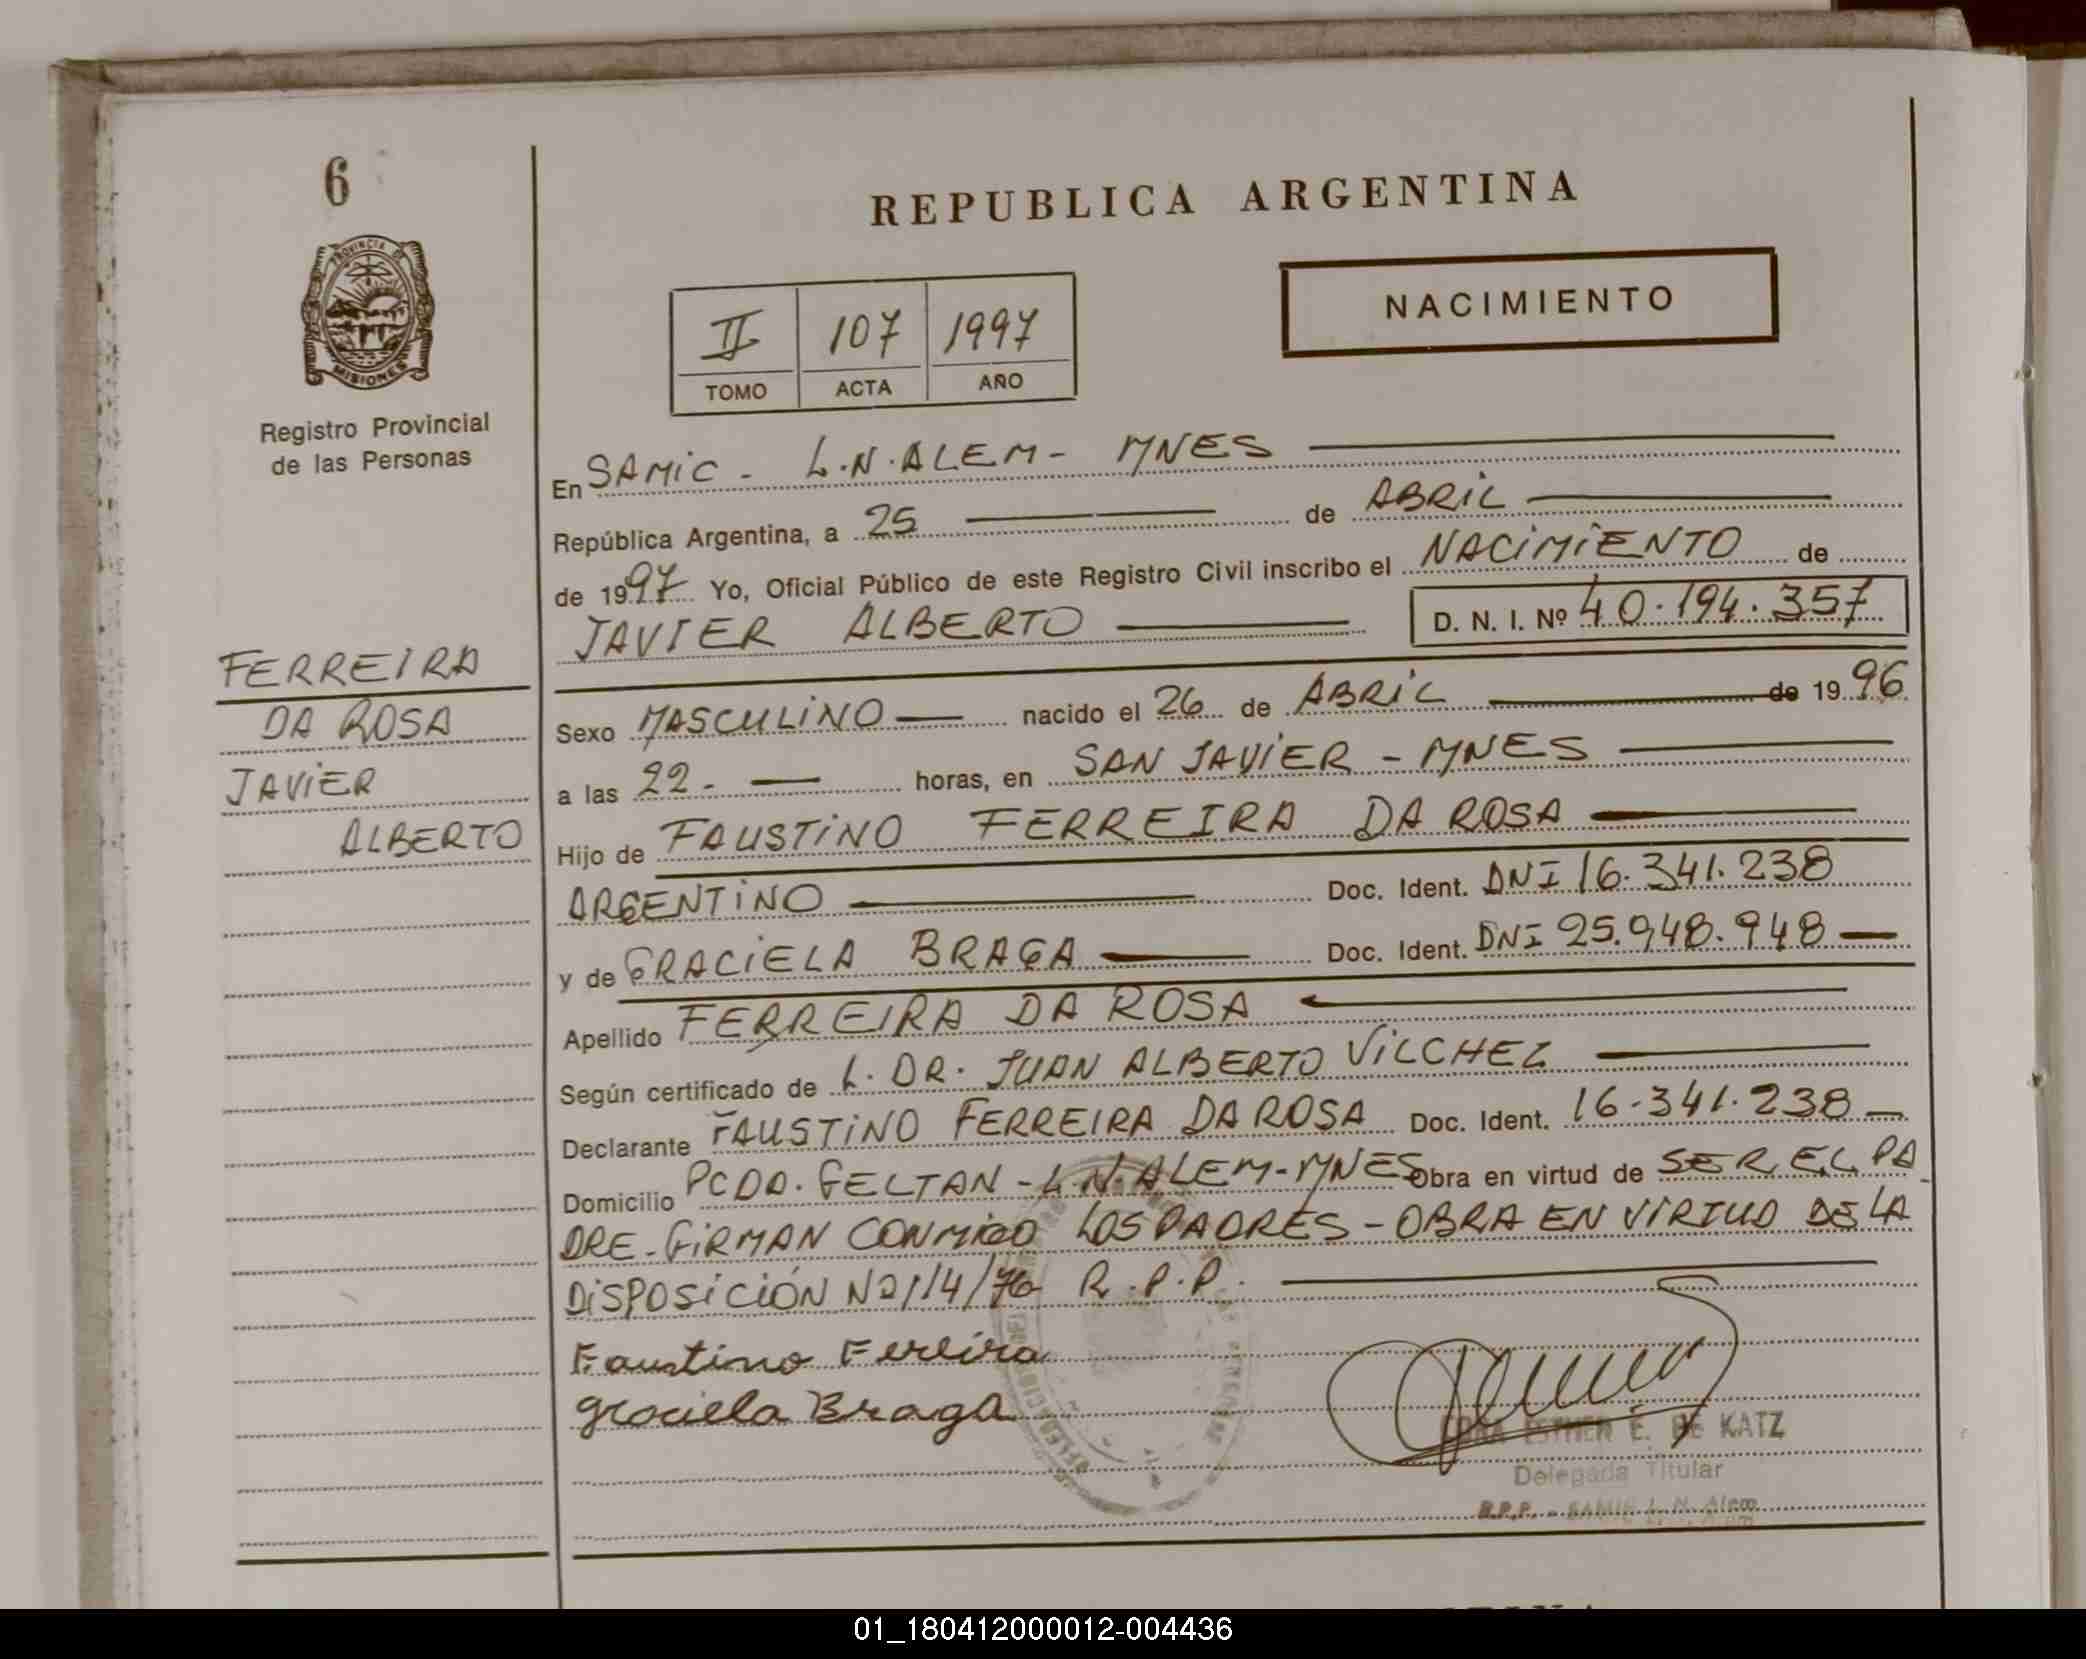 6
REPUBLICA ARGENTINA
PROVINCIA DE
MISIONES
Registro Provincial
de las Personas
II 107 1997
TOMO ACTA AÑO
NACIMIENTO
En SAMIC - L.N.ALEM - MNES
República Argentina, a 25 de ABRIL
de 1997 Yo, Oficial Público de este Registro Civil inscribo el NACIMIENTO de
JAVIER ALBERTO D. N. I. Nº 40.194.357
FERREIRA
DA ROSA
JAVIER
ALBERTO
Sexo MASCULINO nacido el 26 de ABRIL de 1996
a las 22 - horas, en SAN JAVIER - MNES
Hijo de FAUSTINO FERREIRA DA ROSA
ARGENTINO Doc. Ident. DNI 16.341.238
y de GRACIELA BRAGA Doc. Ident. DNI 25.948.948
Apellido FERREIRA DA ROSA
Según certificado de L. DR. JUAN ALBERTO VILCHEZ
Declarante FAUSTINO FERREIRA DA ROSA Doc. Ident. 16.341.238
Domicilio PCDA. GELTAN - L.N.ALEM - MNES Obra en virtud de SER EL PA
DRE - FIRMAN CONMIGO LOS PADRES - OBRA EN VIRTUD DE LA
DISPOSICIÓN Nº 114/76 R.P.P.
Faustino Fereira
Graciela Braga
ESTHER E. DE KATZ
Delegada Titular
R.P.P. - SAMIC L. N. Alem
01_180412000012-004436